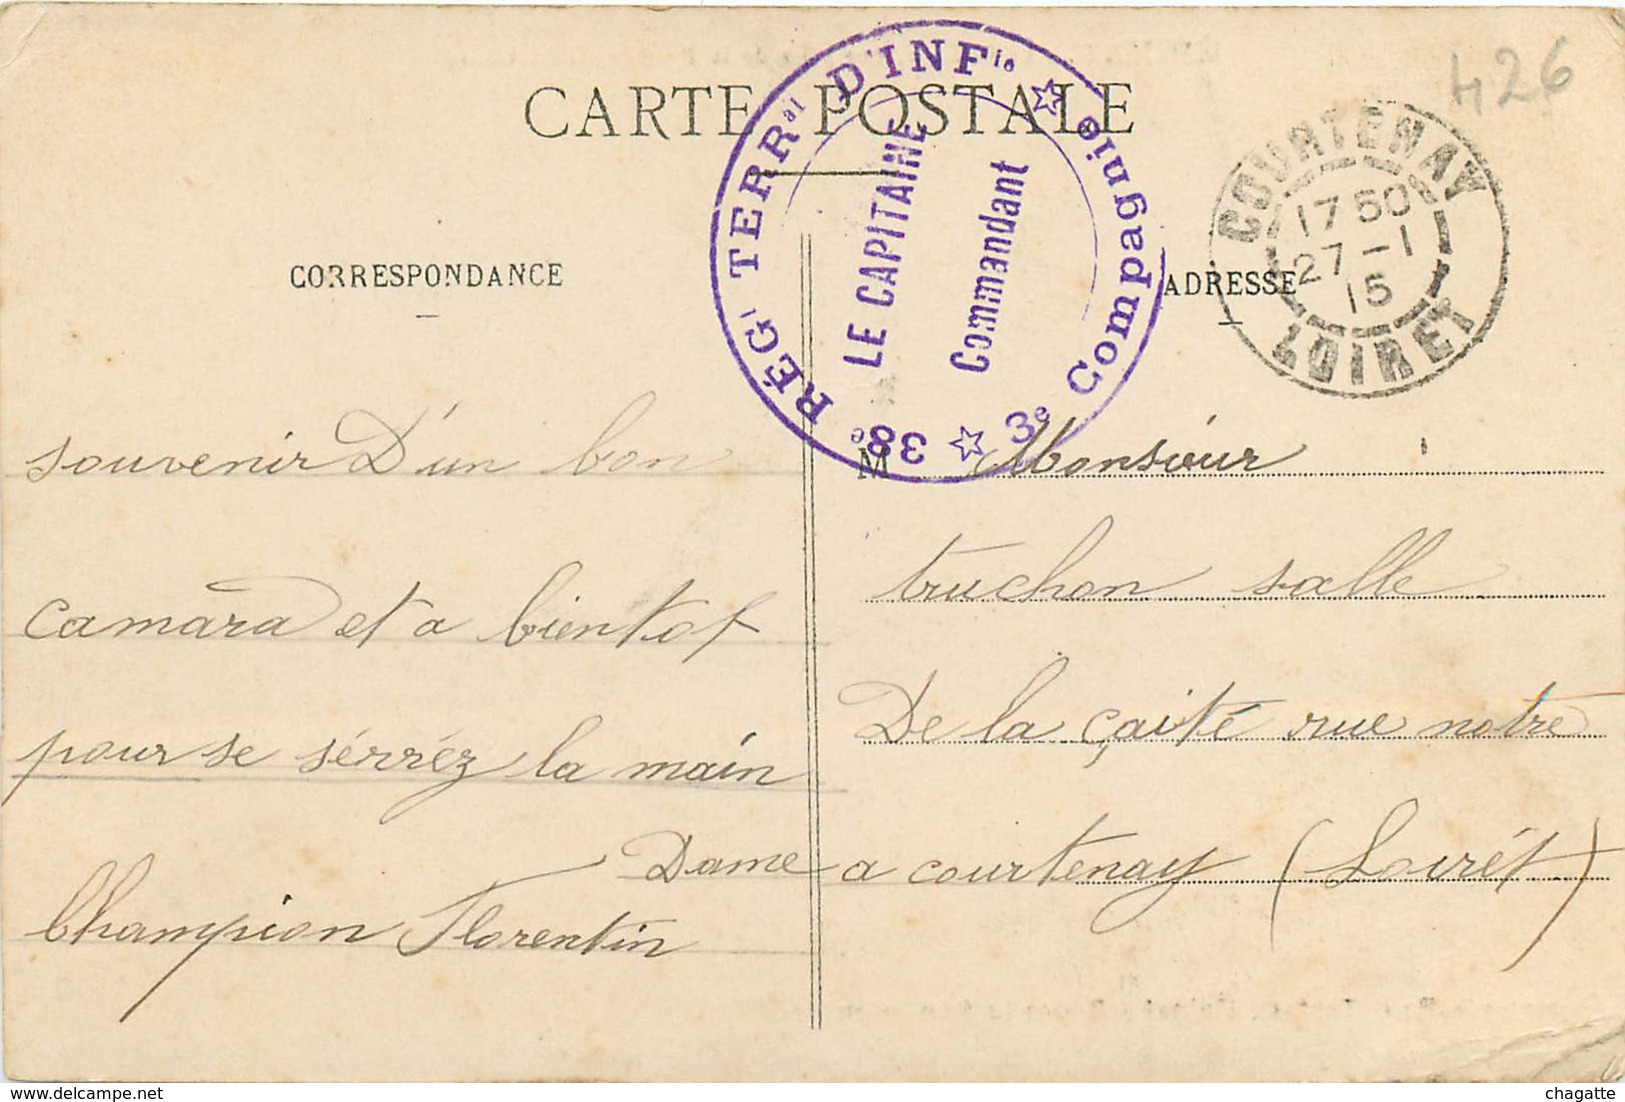 426
CARTE POSTALE
38e RÉGt TERRal D'INFie ☆ 3e Compagnie ☆
LE CAPITAINE
Commandant
COURTENAY
17 50
27 - 1
15
LOIRET
CORRESPONDANCE
ADRESSE
souvenir D'un bon
camara et a bientot
pour se sérréz la main
Champion Florentin
M Monsieur
truchon salle
De la çaité rue notre
Dame a courtenay (Loirét)
delcampe.net
chagatte